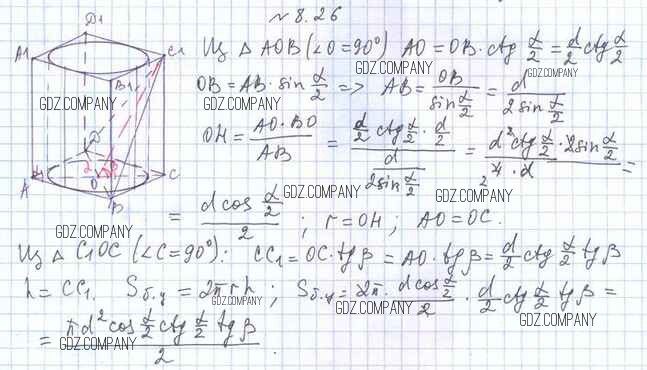 № 8.26
D1
A1
C1
B1
D
A
O
C
B
Из △ AOB (∠O=90°) AO = OB·ctg α/2 = d/2 ctg α/2
GDZ.COMPANY
GDZ.COMPANY
OB = AB·sin α/2 => AB = OB/(sin α/2) = d/(2 sin α/2)
GDZ.COMPANY
GDZ.COMPANY
OH = AO·BO/AB = (d/2 ctg α/2 · d/2)/(d/(2 sin α/2)) = (d² ctg α/2 · 2 sin α/2)/(4·d) =
GDZ.COMPANY
GDZ.COMPANY
GDZ.COMPANY
= (d cos α/2)/2 ; r = OH ; AO = OC.
GDZ.COMPANY
GDZ.COMPANY
Из △ C1OC (∠C=90°): CC1 = OC·tg β = AO·tg β = d/2 ctg α/2 tg β
GDZ.COMPANY
h = CC1. Sб.ц = 2πrh ; Sб.ц = 2π · (d cos α/2)/2 · d/2 ctg α/2 tg β =
GDZ.COMPANY
GDZ.COMPANY
= (πd² cos α/2 ctg α/2 tg β)/2 .
GDZ.COMPANY